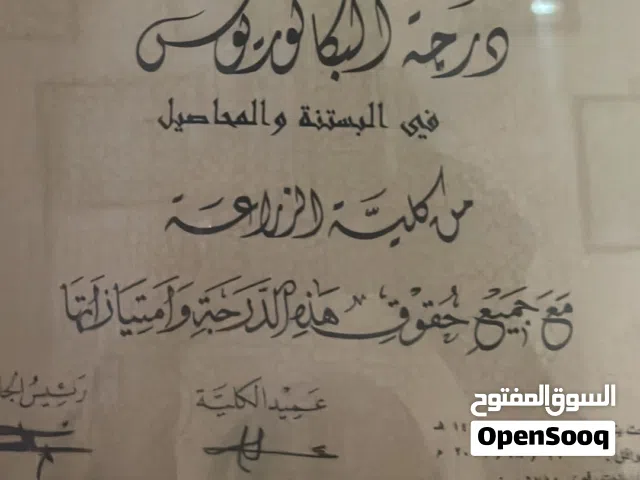 درجة البكالوريوس
في البستنة والمحاصيل
من كلية الزراعة
مَعَ جَمِيعِ حُقُوقِ هَذِهِ الدَّرَجَةِ وَامتِيَازَاتِهَا
عميد الكلية
رئيس
السوق المفتوح
OpenSooq